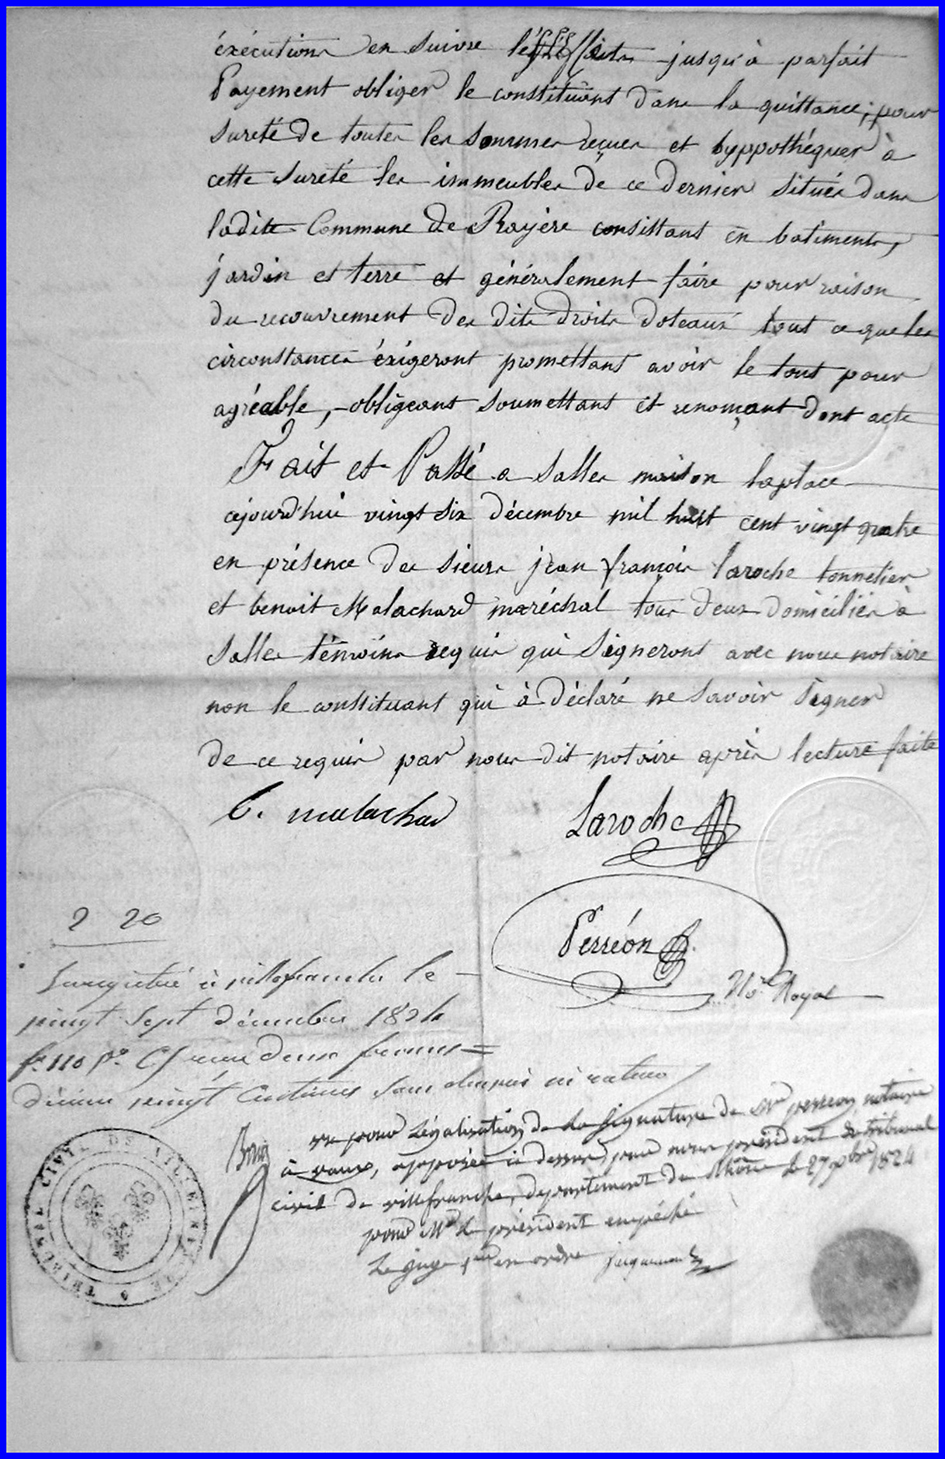 éxécutions en suivre les effaits jusqu'à parfait
Payement obliger le constituant dans la quittance, pour
sureté de toutes les sommes reçues et hyppothéquer à
cette sureté les immeubles de ce dernier situés dans
ladite Commune de Rayère consistant en batiments,
jardin et terre et généralement faire pour raison
du recouvrement des dits droits doteaux tout ce que les
circonstances éxigeront promettant avoir le tout pour
agréable, obligeant soumettant et renonçant dont acte
Fait et Passé a Salles maison laplace
cejourd'hui vingt six décembre mil huit cent vingt quatre
en présence des sieurs jean françois laroche tonnelier
et benoit Malachard maréchal tous deux domiciliés à
Salles témoins requis qui signeront avec nous notaire
non le constituant qui à déclaré ne savoir signer
de ce requis par nous dit notaire après lecture faite
B. malachard
Laroche
Perréon
No. Royal
2 20
Enregistré à villefranche le
vingt sept décembre 1824
fo. 110 Ro. C. reçu deux francs
décime vingt centimes
vu pour Légalisation de La Signature de Sr perréon, notaire
à vaux, apposée ci dessus, par nous président du tribunal
civil de villefranche, département du Rhône le 27 Xbre 1824
pour Mr Le président empêché
Le juge en ordre
TRIBUNAL CIVIL DE VILLEFRANCHE